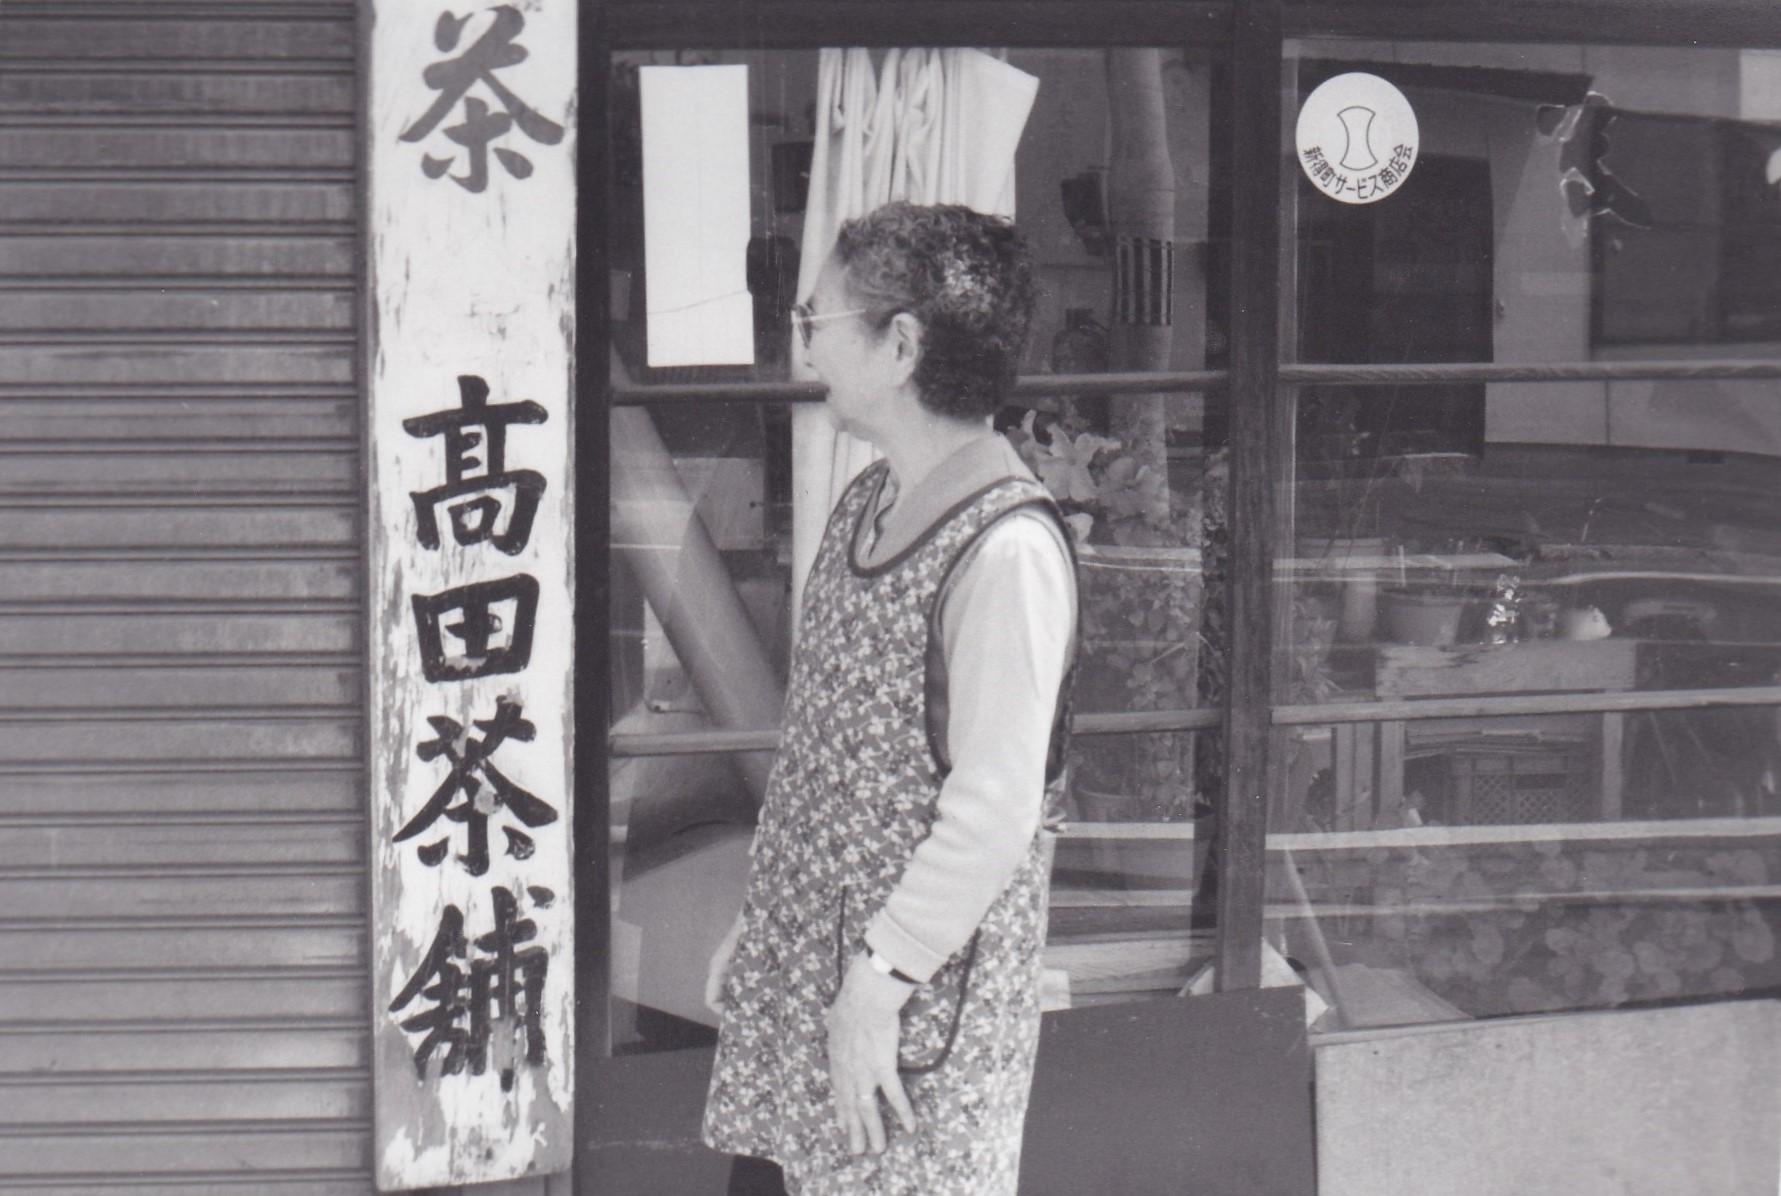 茶
髙田茶舗
新得町サービス商店会